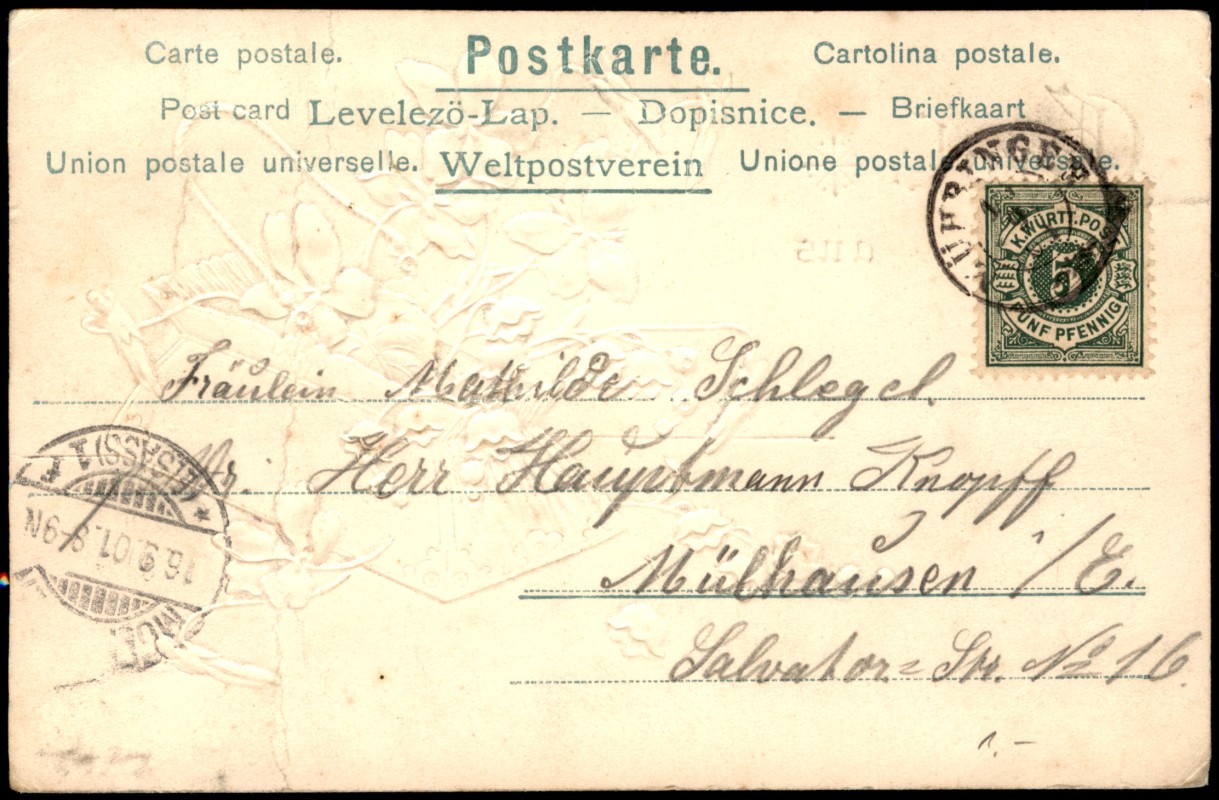 Carte postale. Postkarte. Cartolina postale.
Post card Levelező-Lap. — Dopisnice. — Briefkaart
Union postale universelle. Weltpostverein Unione postale universale.
K. WÜRTT. POST
5
FÜNF PFENNIG
aus
Fräulein Mathilde Schlegel.
Herr Hauptmann Knopff
Mülhausen i/E.
Salvator=Str. No 16.
(ELSASS) 1
16.9.01.8-9N
1.-